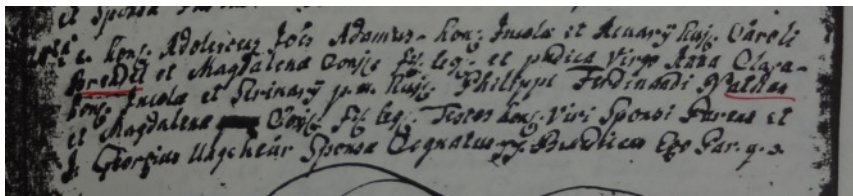 et Sponsa
hon: Adolescens Joês Adamus hon: Incolæ et Acuarÿ huj: Caroli
Brendel et Magdalenæ Conjç fil: leg: et pudica Virgo Anna Clara
hon: Incolæ et Scrinarÿ p.m. huj: Philippi Ferdinandi
et Magdalenæ Conjç fil: leg: Testes hon: Viri Sponsi Parens et
J. Georgius Ungeheür Sponsæ Cognatus Ego Par. q. s.